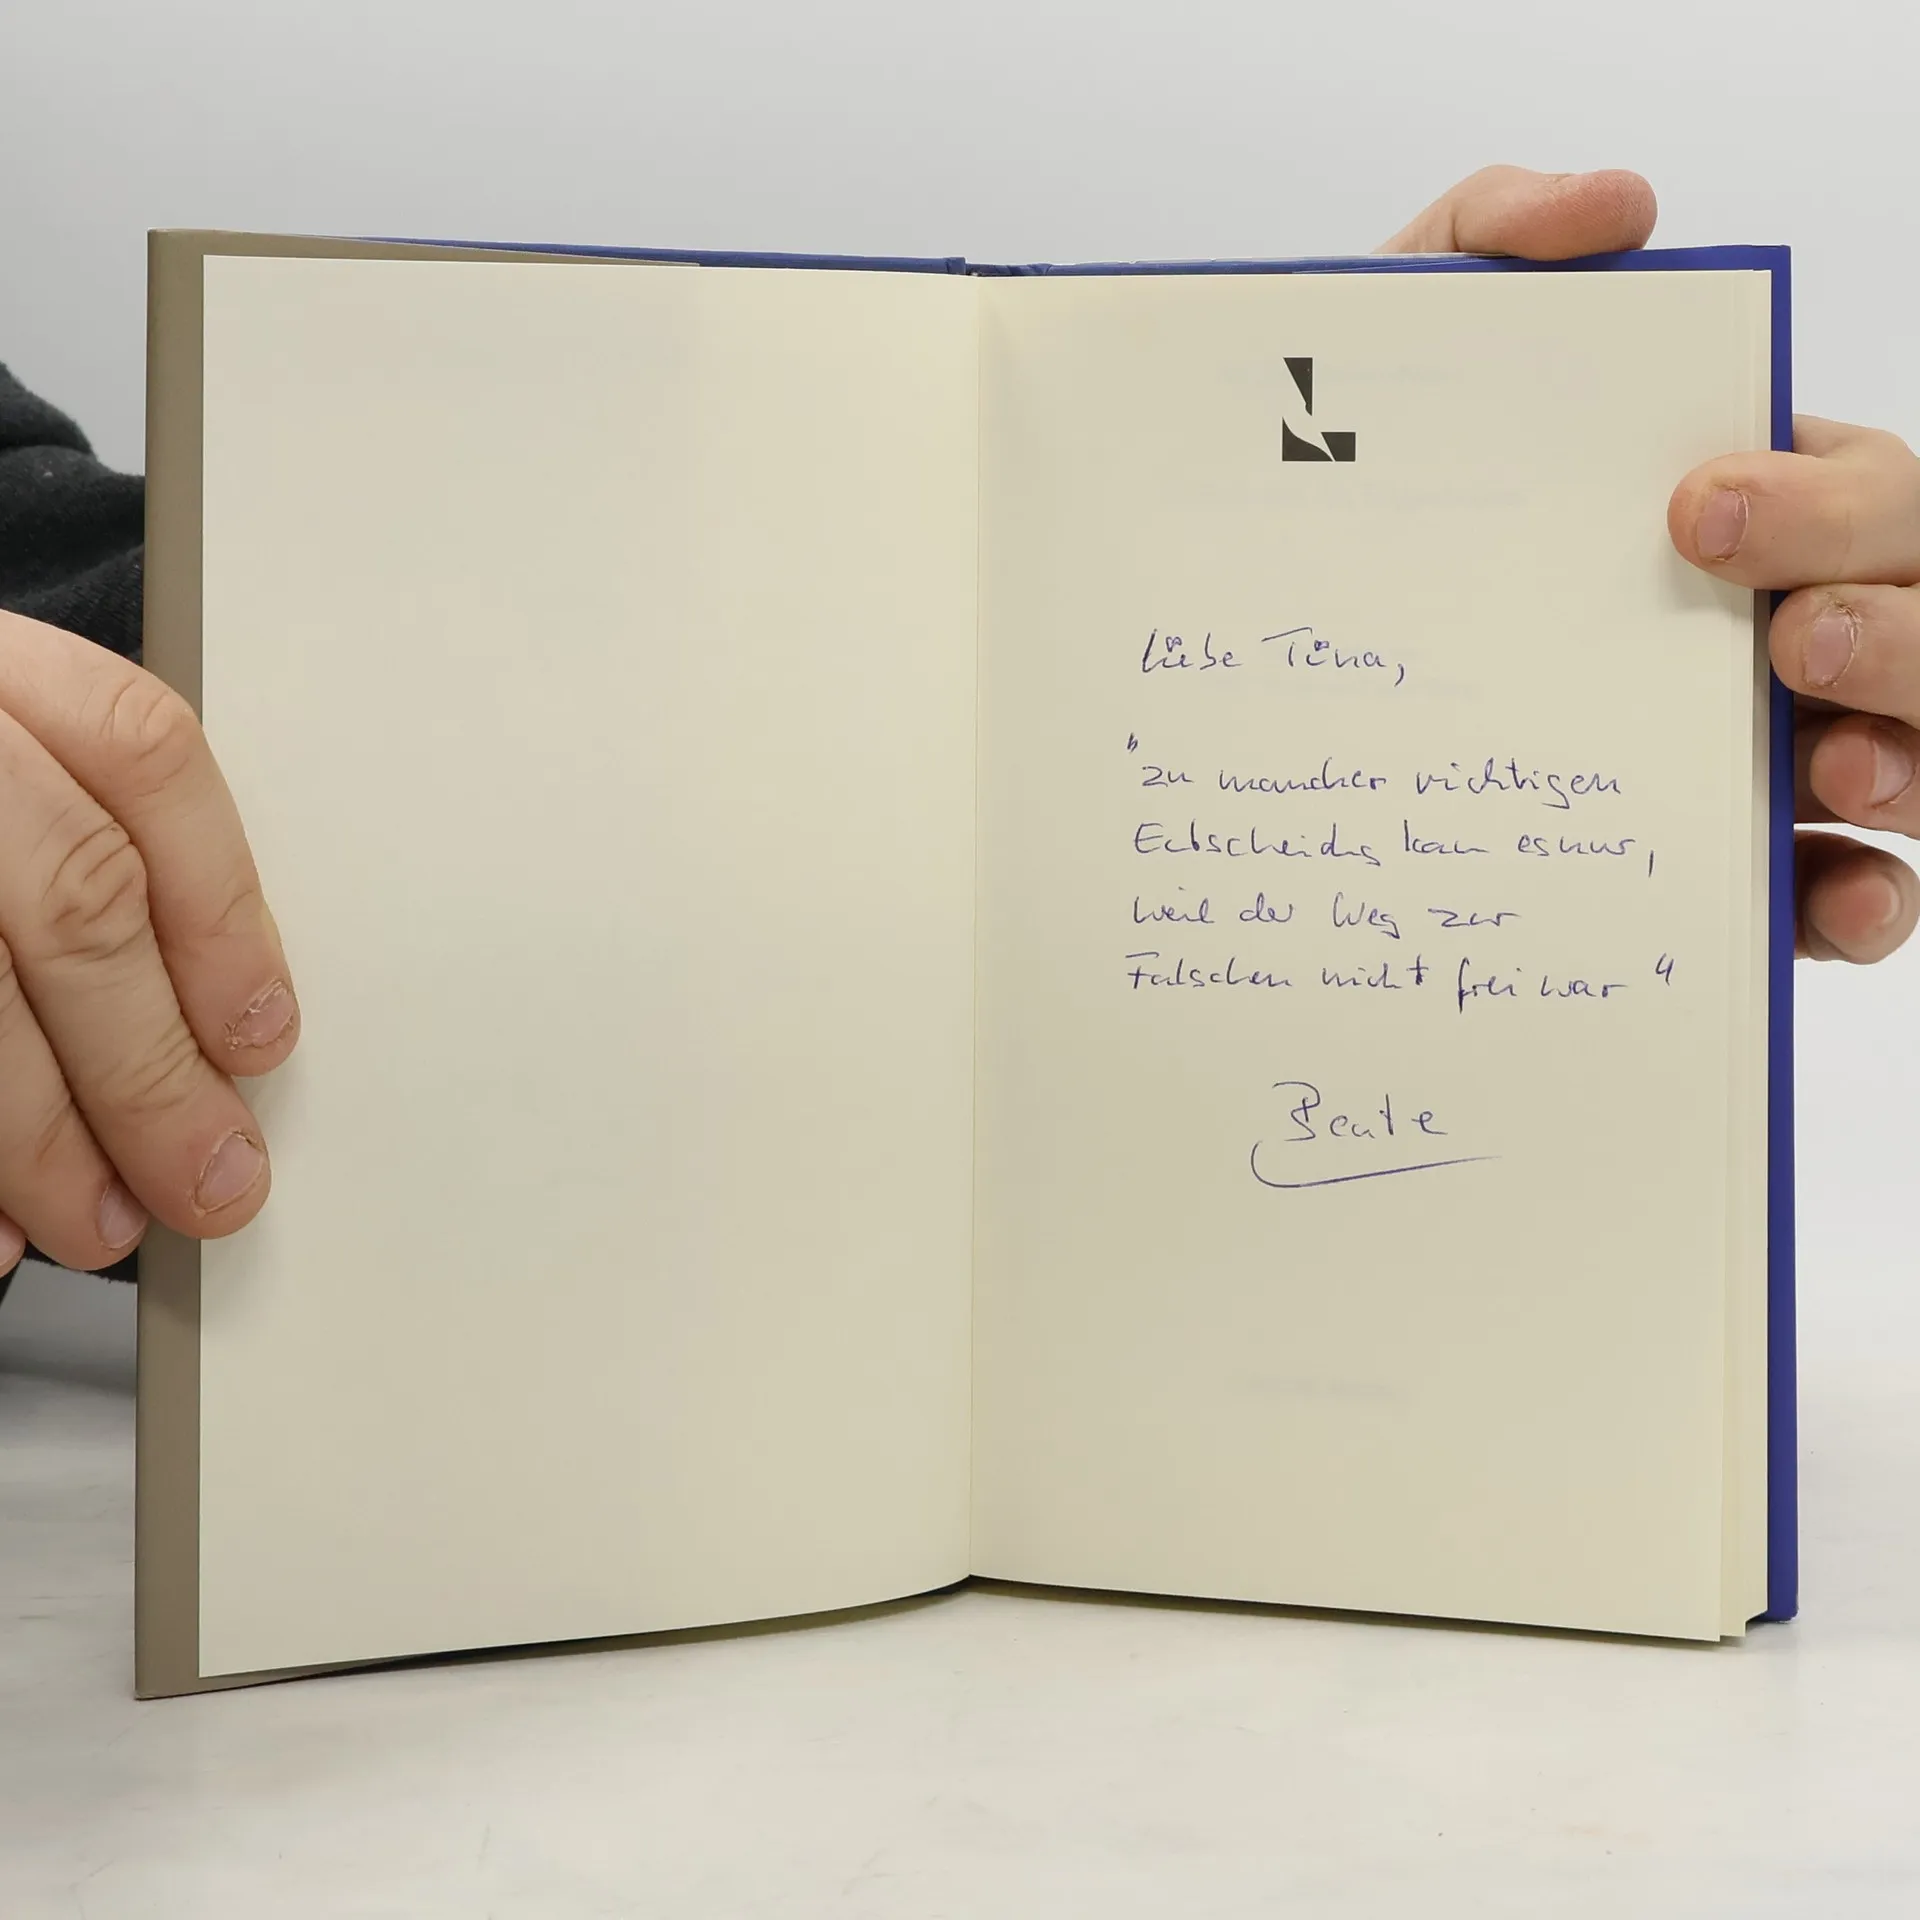 Liebe Tina,
"zu mancher richtigen
Entscheidung kam es nur,
weil der Weg zur
Falschen nicht frei war"
Beate